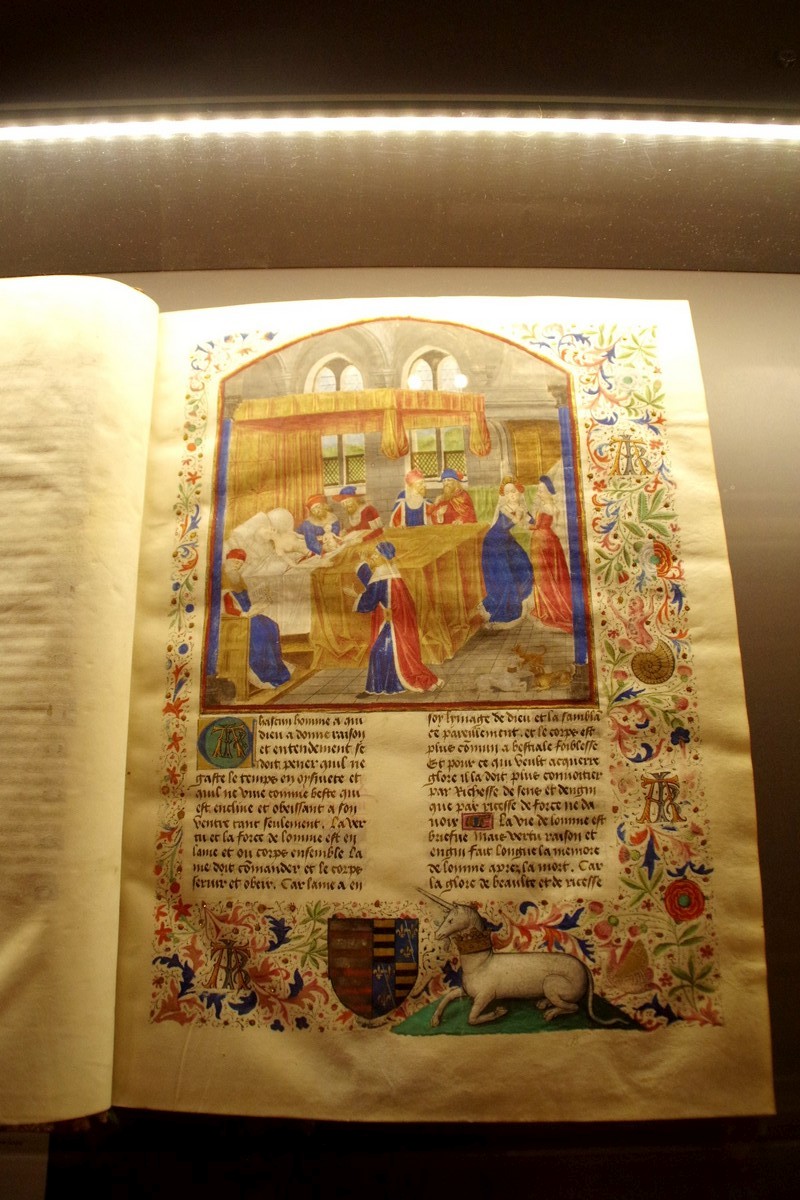 Chascun homme a qui
dieu a donne raison
et entendement se
doit pener quil ne
gaste le temps en oysiuete et
quil ne viue comme beste qui
est encline et obeissant a son
ventre tant seulement. La ver
tu et la force de lomme est en
lame et ou corps ensemble La
me doit cōmander et le corps
seruir et obeir. Car lame a en
soy lymage de dieu et la sambla
ce pareillement. et le corps est
plus cōmun a bestiale foiblesse
Et pour ce qui veult acquerre
glore il la doit plus conuoitier
par Richesse de sens et dengin
que par ricesse de force ne da
uoir La vie de lomme est
briefue Mais vertu raison et
engin fait longue la memore
de lomme aprez la mort. Car
la glore de beaulte et de ricesse